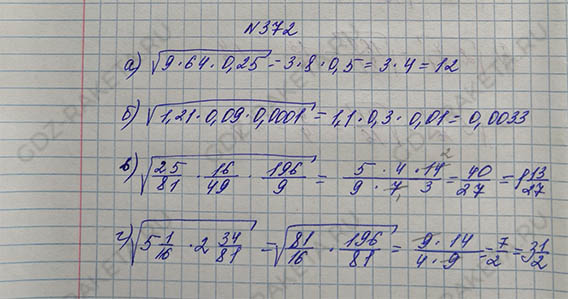 №372
а) √9·64·0,25 = 3·8·0,5 = 3·4 = 12
б) √1,21·0,09·0,0001 = 1,1·0,3·0,01 = 0,0033
в) √25/81 · 16/49 · 196/9 = 5·4·14 2/9·7, 3 = 40/27 = 1 13/27
г) √5 1/16 · 2 34/81 = √81/16 · 196/81 = 9·14/4·9 = 7/2 = 3 1/2
GDZ-RAKETA.RU